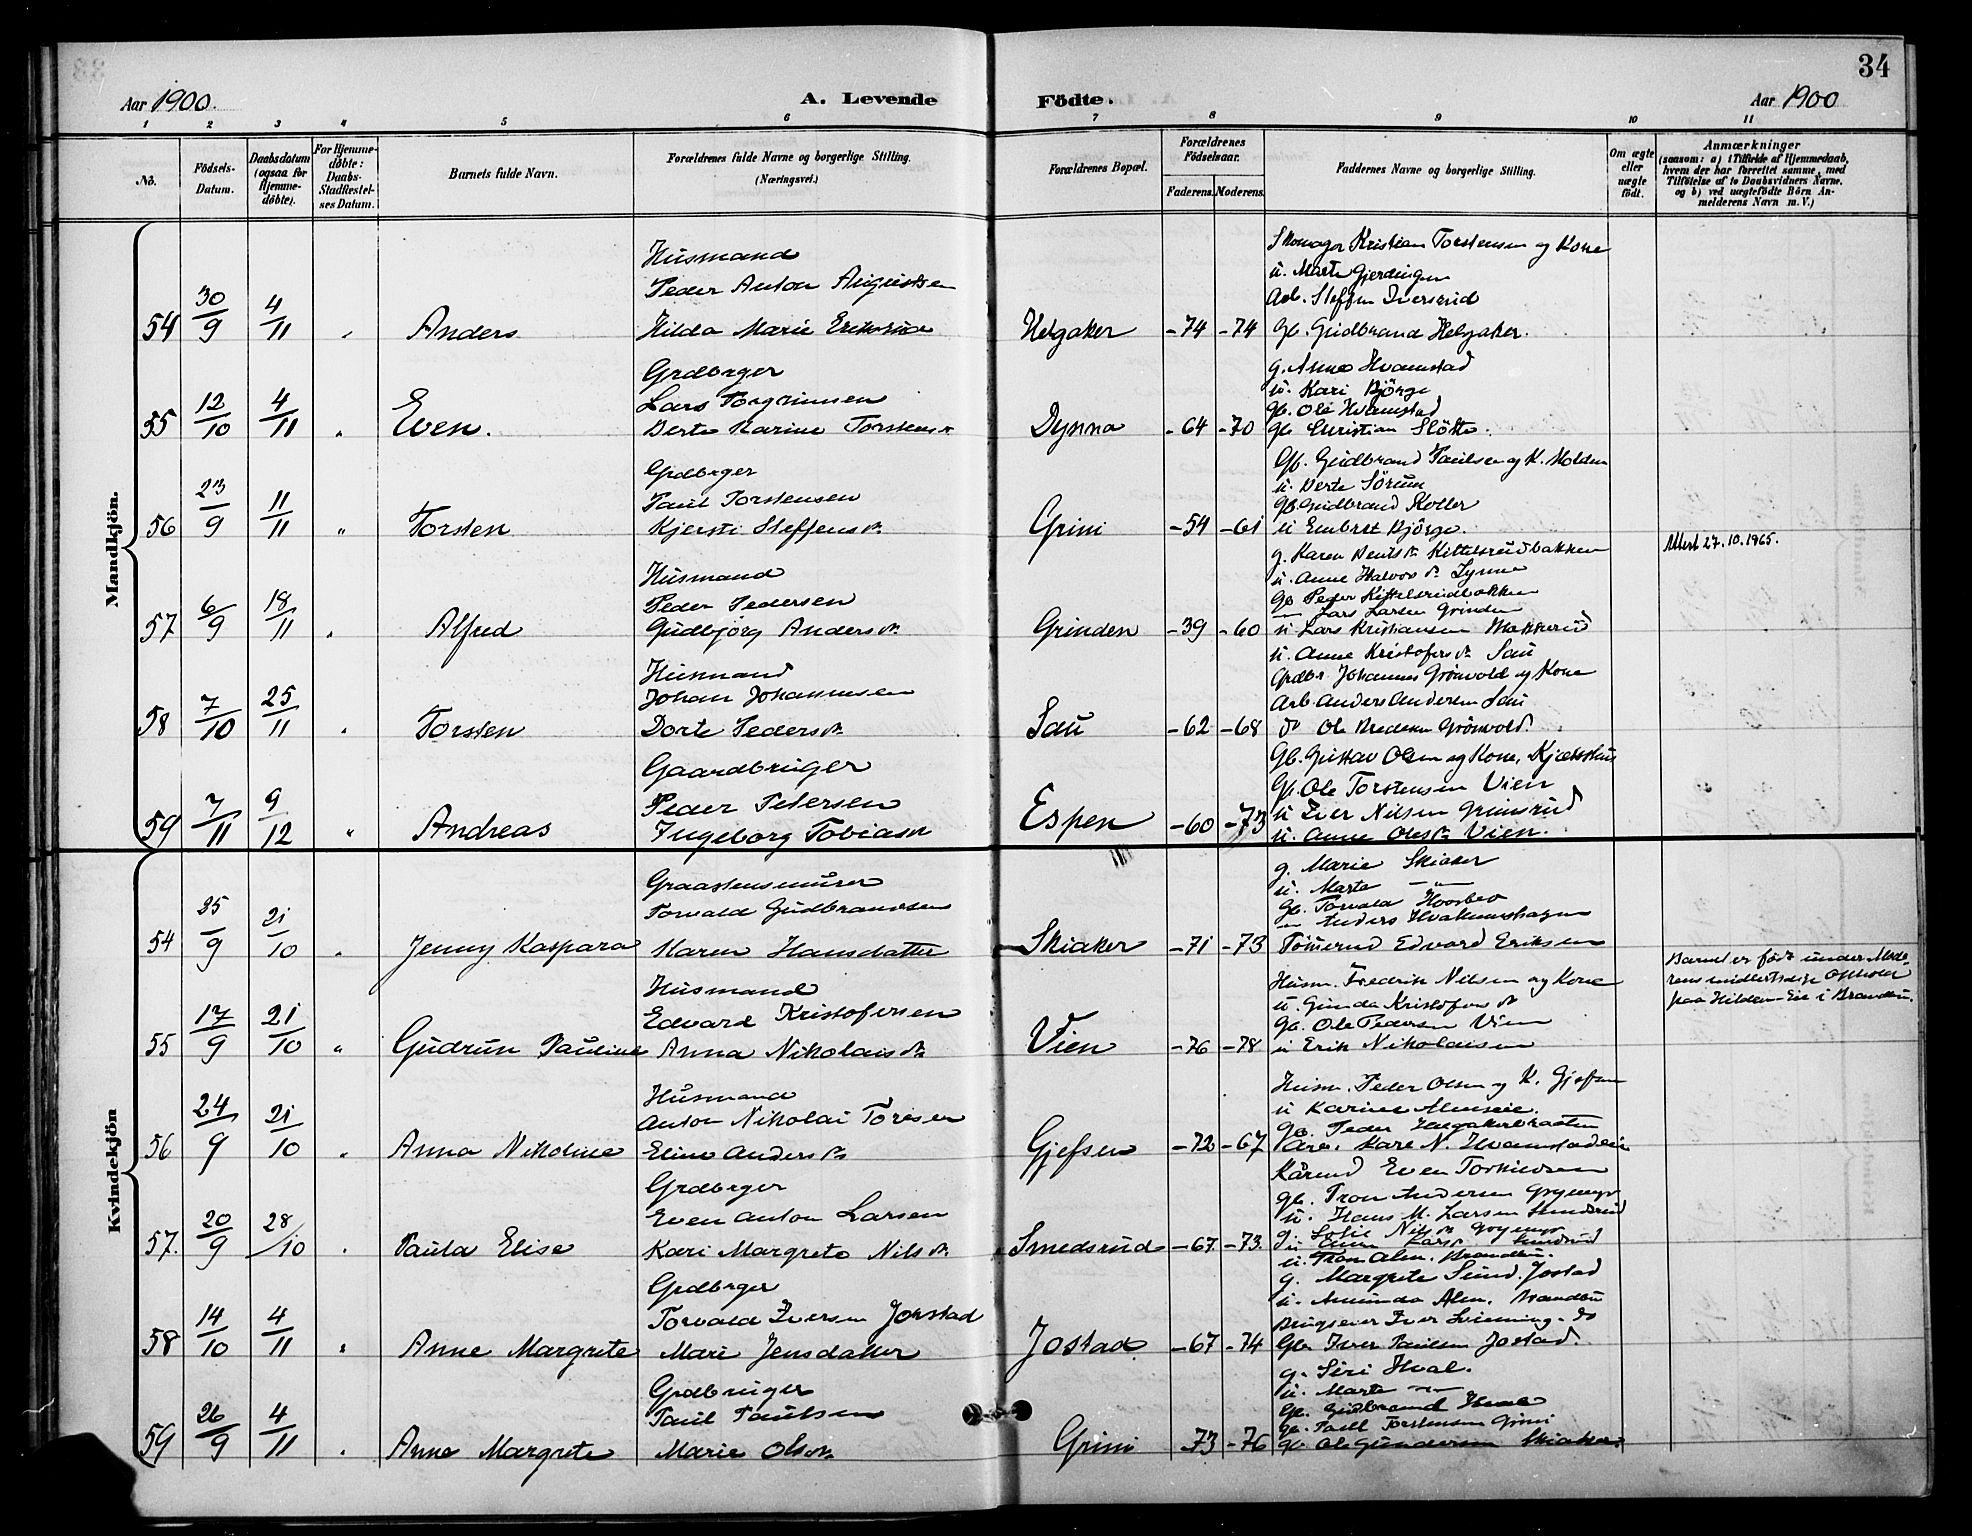 34
Aar 1900.
A. Levende
Födte.
Aar 1900
1 2 3 4 5 6 7 8 9 10 11
No.
Födsels-
Datum.
Daabsdatum
(ogsaa for
Hjemme-
døbte).
For Hjemme-
døbte:
Daabs-
Stadfæstel-
ses Datum.
Barnets fulde Navn.
Forældrenes fulde Navne og borgerlige Stilling.
(Næringsvei.)
Forældrenes Bopæl.
Forældrenes
Födselsaar.
Faderens. Moderens.
Faddernes Navne og borgerlige Stilling.
Om ægte
eller
uægte
født.
Anmærkninger
(saasom: a) i Tilfælde af Hjemmedaab,
hvem der har forrettet samme, med
Tilføielse af to Daabsvidners Navne,
og b) ved uægtefødte Børn An-
melderens Navn m. V.)
Mandkjön.
54 30/9 4/11 " Anders
Husmand
Peder Anton Augustsen
Hilda Marie
Helgaker -74 -74
Skomager Kristian Torstensen og Kone
u. Marte Gjerdingen
Arb. Steffen Iversrud
Gb. Gudbrand Helgaker.
55 12/10 4/11 " Even.
Grdbrger
Lars Torgrimsen
Berte Karine Torstensd.
Dynna -64 -70
g. Anne Hvamstad
u. Kari Bjørge
Gb. Ole Hvamstad
Gb. Christian Sløtte.
56 23/9 11/11 " Torsten
Grdbrger
Paul Torstensen
Kjersti Steffensd.
Grini -54 -61
Gb. Gudbrand Paulsen og K. Molden
u. Berte Sørum
Gb Gudbrand Koller
u Embret Bjørge.
57 6/9 18/11 " Alfred
Husmand
Peder Pedersen
Gudbjørg Andersd.
Grinden -39 -60
g. Karen Kittelsrudbakken
u. Anne Halvorsd. Lynne
Gb Peder Kittelsrudbakken
— Lars Larsen Grinden
u Lars Kristiansen
Attest 27.10.1965.
58 7/10 25/11 " Torsten
Husmand
Johan Johannesen
Dorte Pedersd.
Sau -62 -68
u. Anne Kristofersd. Sau
Grdbr. Johannes Grönvold og Kone
Arb. Anders Andersen Sau
do Ole Grönvold.
59 7/11 9/12 " Andreas
Gaardbruger
Peder Petersen
Ingeborg Tobiasd.
Espen -60 -73
Gb. Gustav Olsen og Kone,
Gb. Ole Torstensen Vien
u Iver Nilsen Grimsrud
u. Anne Olsd. Vien.
Kvindekjön
54 25/9 21/10 " Jenny Kaspara
Graastensmurer
Torvald Gudbrandsen
Karen Hansdatter
Skiaker -71 -73
g. Marie Skiaker
u. Marte — " —
Gb. Torvald
— Anders
Tømmermd Edvard Eriksen
55 17/9 21/10 " Gudrun Pauline
Husmand
Edvard Kristofersen
Anna Nikolaisd.
Vien -76 -78
Husm. Fredrik Nilsen og Kone
u. Gunda Kristofersd.
Gb. Ole Pedersen Vien
u Erik Nikolaisen
Barnet er født under Mode-
rens midlertidige Ophold
paa Hilden Eie i Brandbu.
56 24/9 21/10 " Anna Nikoline
Husmand
Anton Nikolai Toresen
Eline Andersd.
Gjefsen -72 -67
Husm. Peder Olsen og K. Gjefsen
u Karine Almseie.
Gb. Peder Helgakerbraaten
Kare N. Hvamstadeie
57. 20/9 28/10 " Paula Elise
Grdbrger
Even Anton Larsen
Kari Margrete Nilsd.
Smedsrud -67 -73.
Even
Gb. Tron Andersen Grymyr
u. Hans M. Larsen Smedsrud
g. Sofie Nilsd. Grymyr
58 14/10 4/11 " Anne Margrete
Grdbrger
Torvald Iversen Jostad
Mari Jensdatter
Jostad -67 -74
u. Tron Alm. Brandbu.
g. Margrete Jostad
u. Amunda Alm. Brandbu
Brugseier Iver do
Gb. Iver Paulsen Jostad.
59 26/9 4/11 " Anne Margrete
Grdbruger
Paul Paulsen
Marie Olsd.
Grini -73 -76
g. Siri Hval.
u. Marte — " —
Gb. Gudbrand Hval
Gb. Paul Torstensen Grini
Gb Ole Gundersen Skiaker.